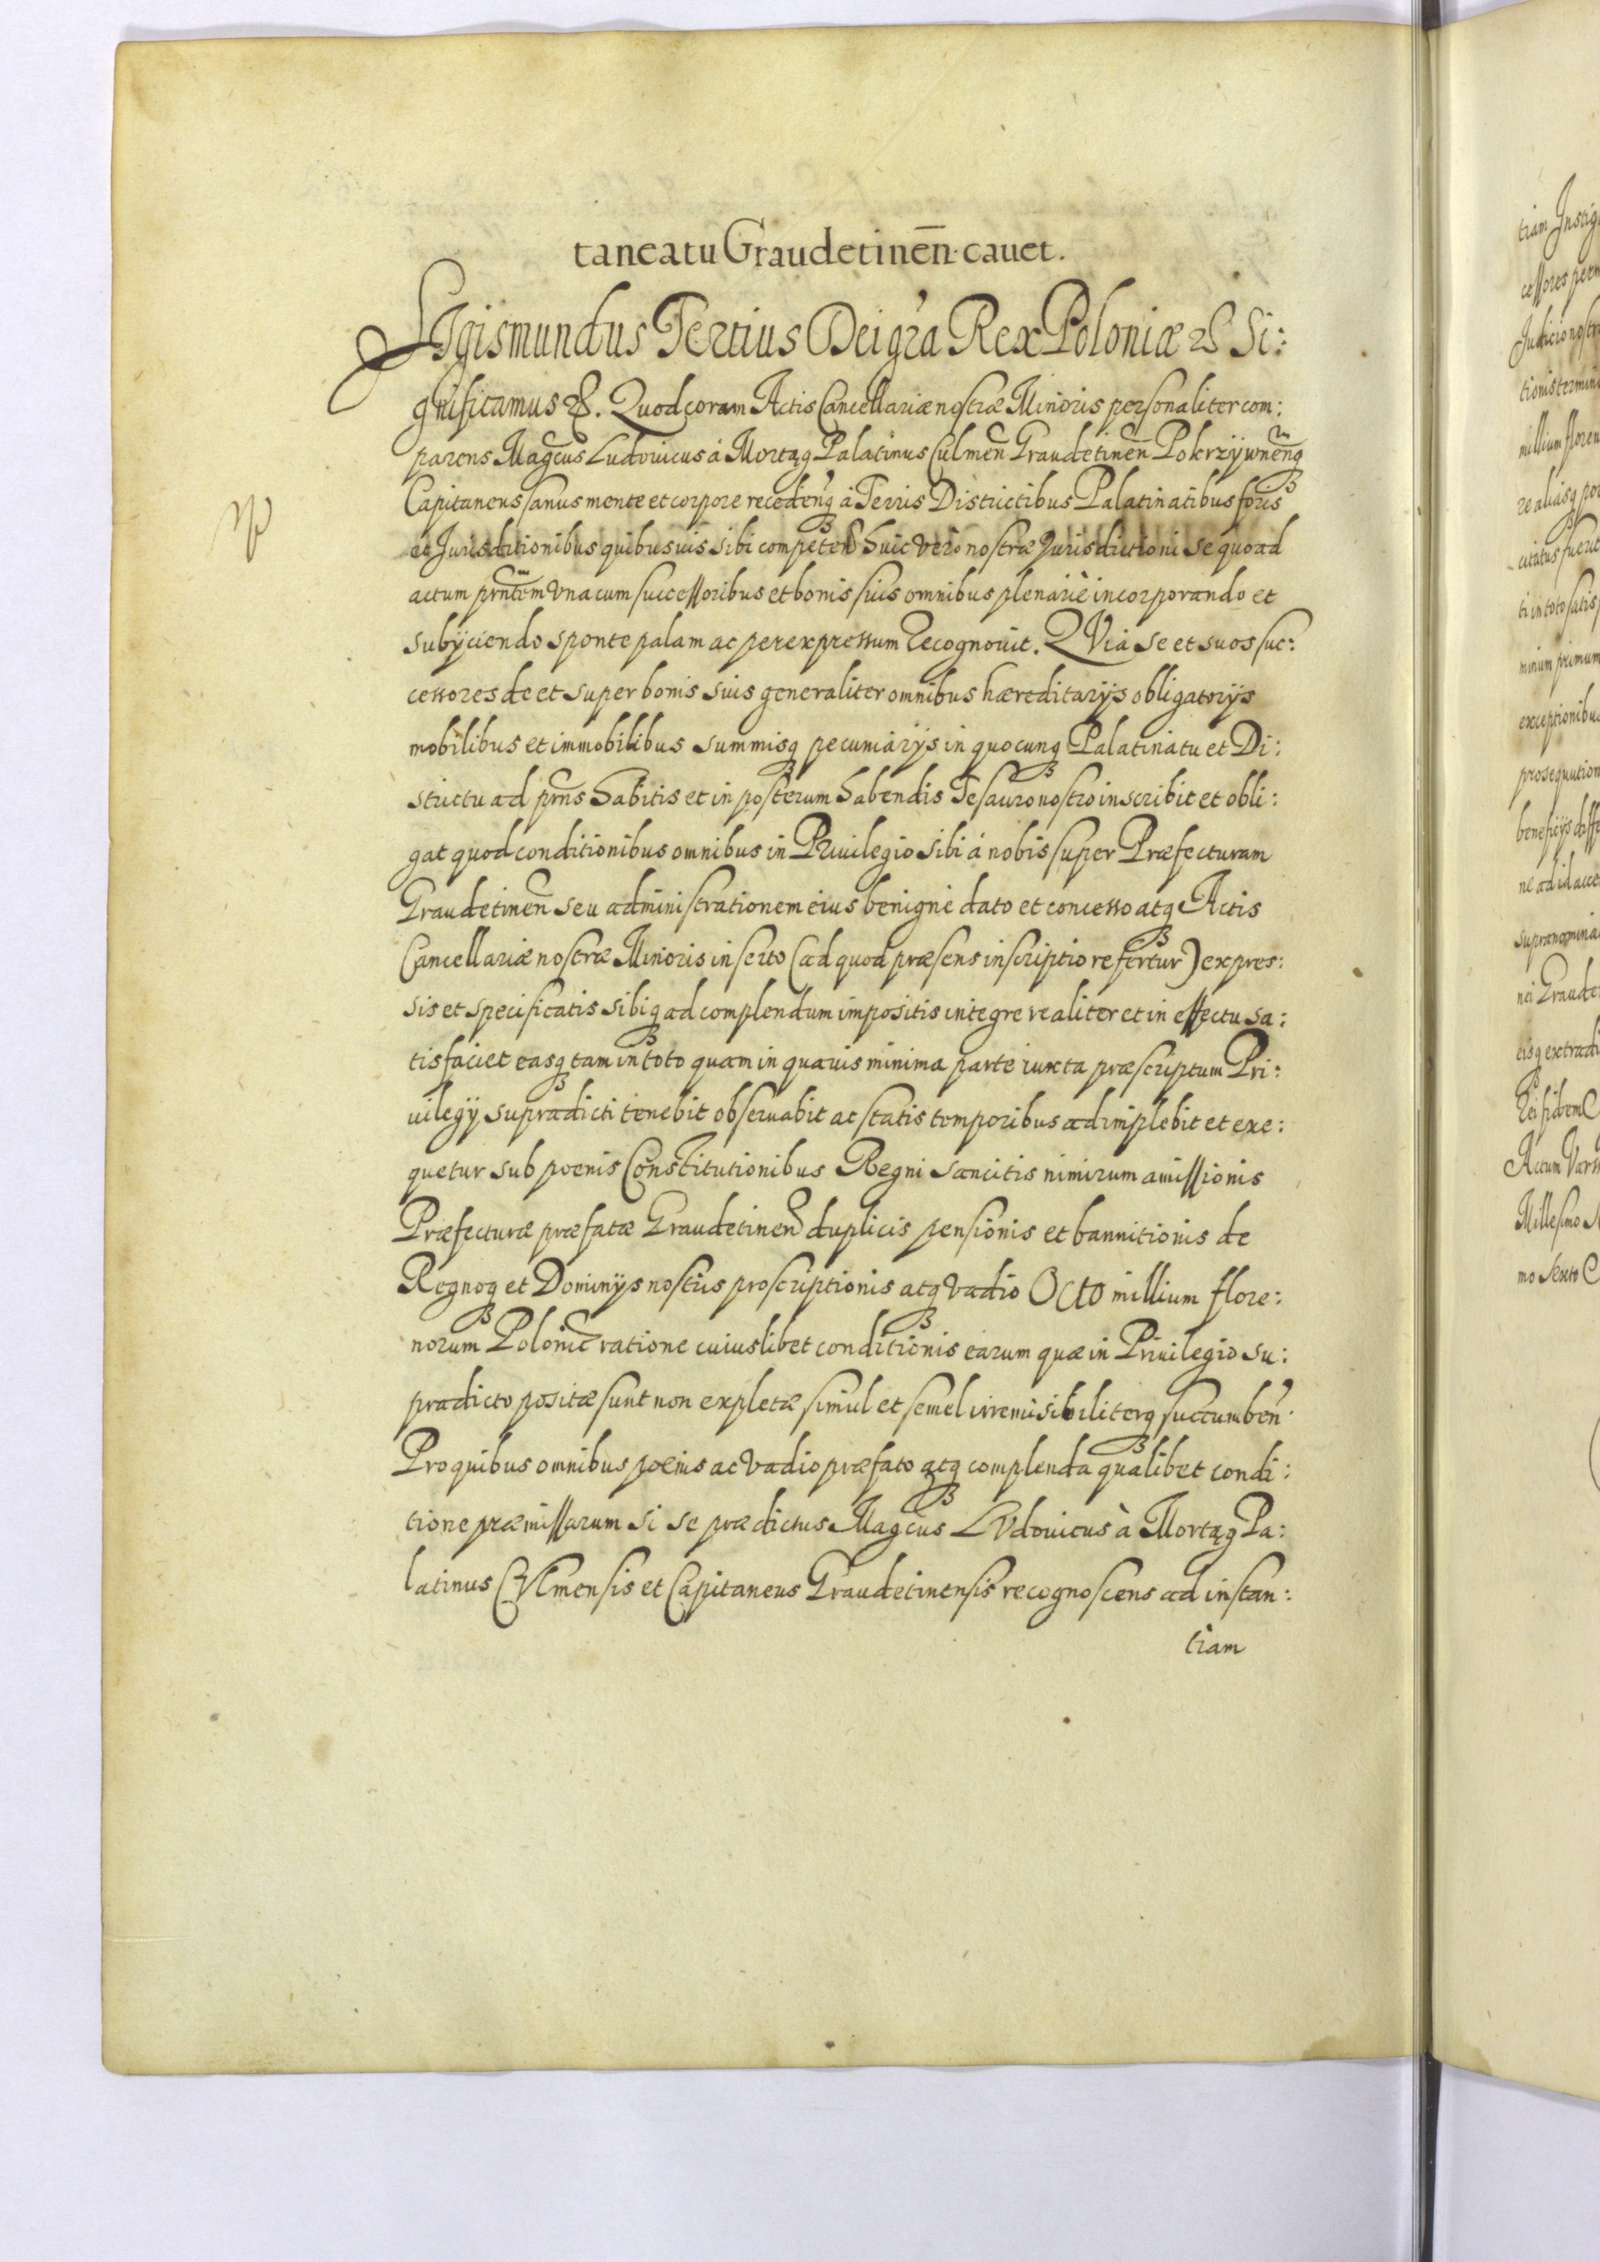 taneatu Graudetinen̄. cauet.
Sigismundus Tertius Dei gra Rex Poloniæ &c Si:
gnificamus &c. Quod coram Actis Cancellariæ nostræ Minoris personaliter com:
parens Magcus Ludouicus à Mortąg Palatinus Culmen̄ Graudetinen̄ Pokrzÿwnen̄q
Capitaneus sanus mente et corpore recedenq à Terris Districtibus Palatinatibus foris
et Jurisditionibus quibusuis sibi competen̄ huic verò nostræ Jurisdictioni se quoad
actum prntem vna cum successoribus et bonis suis omnibus plenariè incorporando et
subÿciendo sponte palam ac per expressum recognouit. QVia se et suos suc:
cessores de et super bonis suis generaliter omnibus hæreditarÿs obligatorÿs
mobilibus et immobilibus summisq pecuniarÿs in quocunq Palatinatu et Di:
strictu ad prns habitis et in posterum habendis Tesauro nostro inscribit et obli:
gat quod conditionibus omnibus in Priuilegio sibi à nobis super Præfecturam
Graudetinen̄ seu administrationem eius benignè dato et concesso atq Actis
Cancellariæ nostræ Minoris inserto (ad quod præsens inscriptio refertur) expres:
sis et specificatis sibiq ad complendum impositis integre realiter et in effectu sa:
tisfaciet easq tam in toto quam in quauis minima parte iuxta præscriptum Pri:
uilegÿ supradicti tenebit obseruabit ac statis temporibus adimplebit et exe:
quetur sub pœnis Constitutionibus Regni sancitis nimirum amissionis
Præfecturæ præfatæ Graudetinen̄ duplicis pensionis et bannitionis de
Regnoq et Dominÿs nostris proscriptionis atq vadio Octo millium flore:
norum Polonic ratione cuiuslibet conditionis earum quæ in Priuilegio su:
pradicto positæ sunt non expletæ simul et semel irremisibiliterq succumben̄.
Pro quibus omnibus pœnis ac vadio præfato atq complenda qualibet condi:
tione præmissarum si se prædictus Magcus LVdouicus à Mortąg Pa:
latinus CVlmensis et Capitaneus Graudetinensis recognoscens ad instan:
tiam